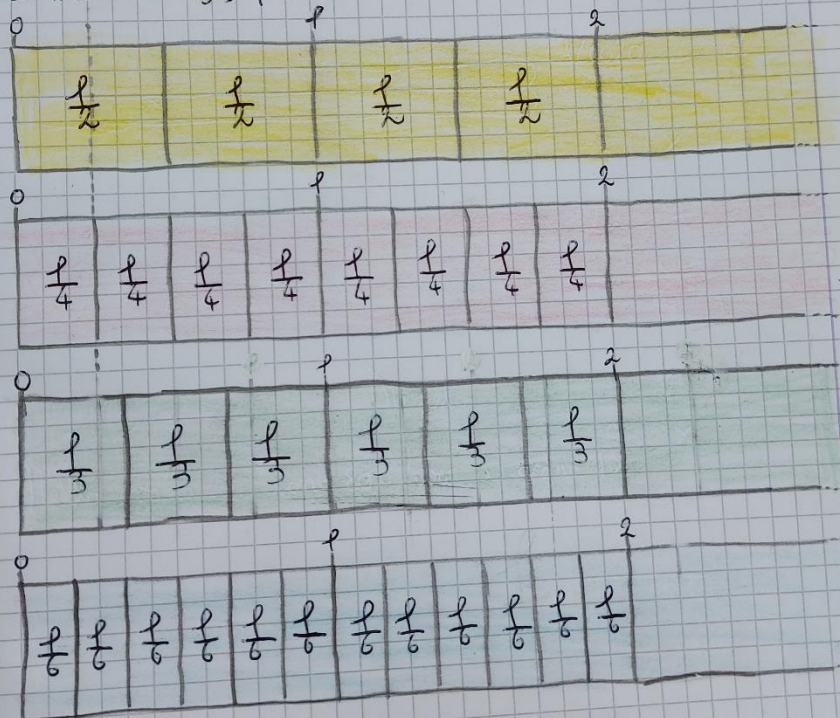 0 1 2
1/2 1/2 1/2 1/2
0 1 2
1/4 1/4 1/4 1/4 1/4 1/4 1/4 1/4
0 1 2
1/3 1/3 1/3 1/3 1/3 1/3
0 1 2
1/6 1/6 1/6 1/6 1/6 1/6 1/6 1/6 1/6 1/6 1/6 1/6